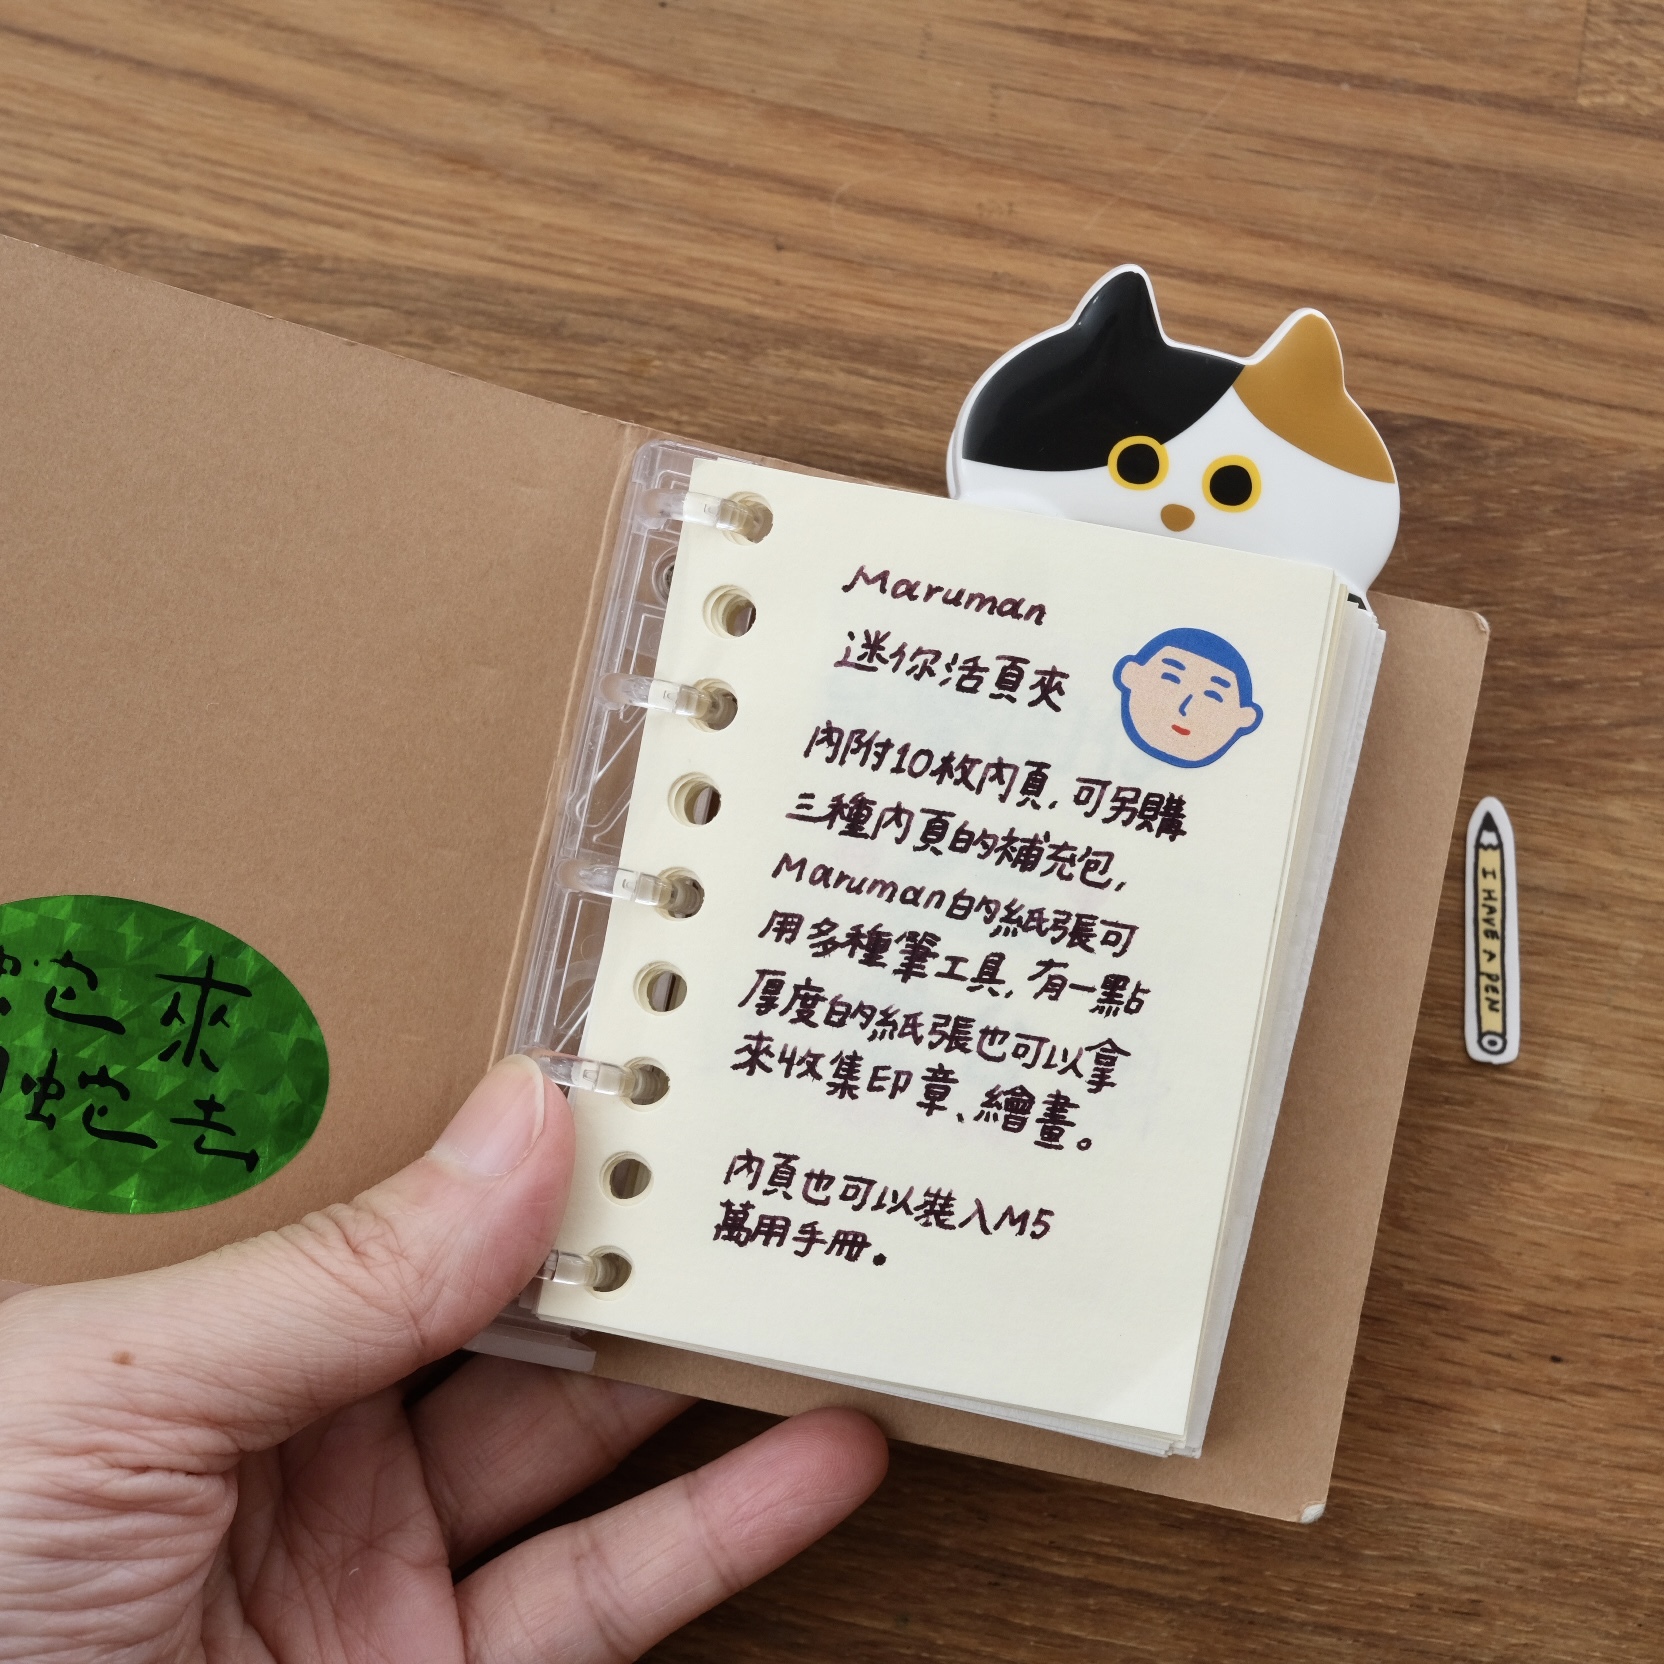 Maruman
迷你活頁夾
內附10枚內頁，可另購
三種內頁的補充包，
Maruman的紙張可
用多種筆工具，有一點
厚度的紙張也可以拿
來收集印章、繪畫。
內頁也可以裝入M5
萬用手冊。
來
蛇去
I HAVE A PEN